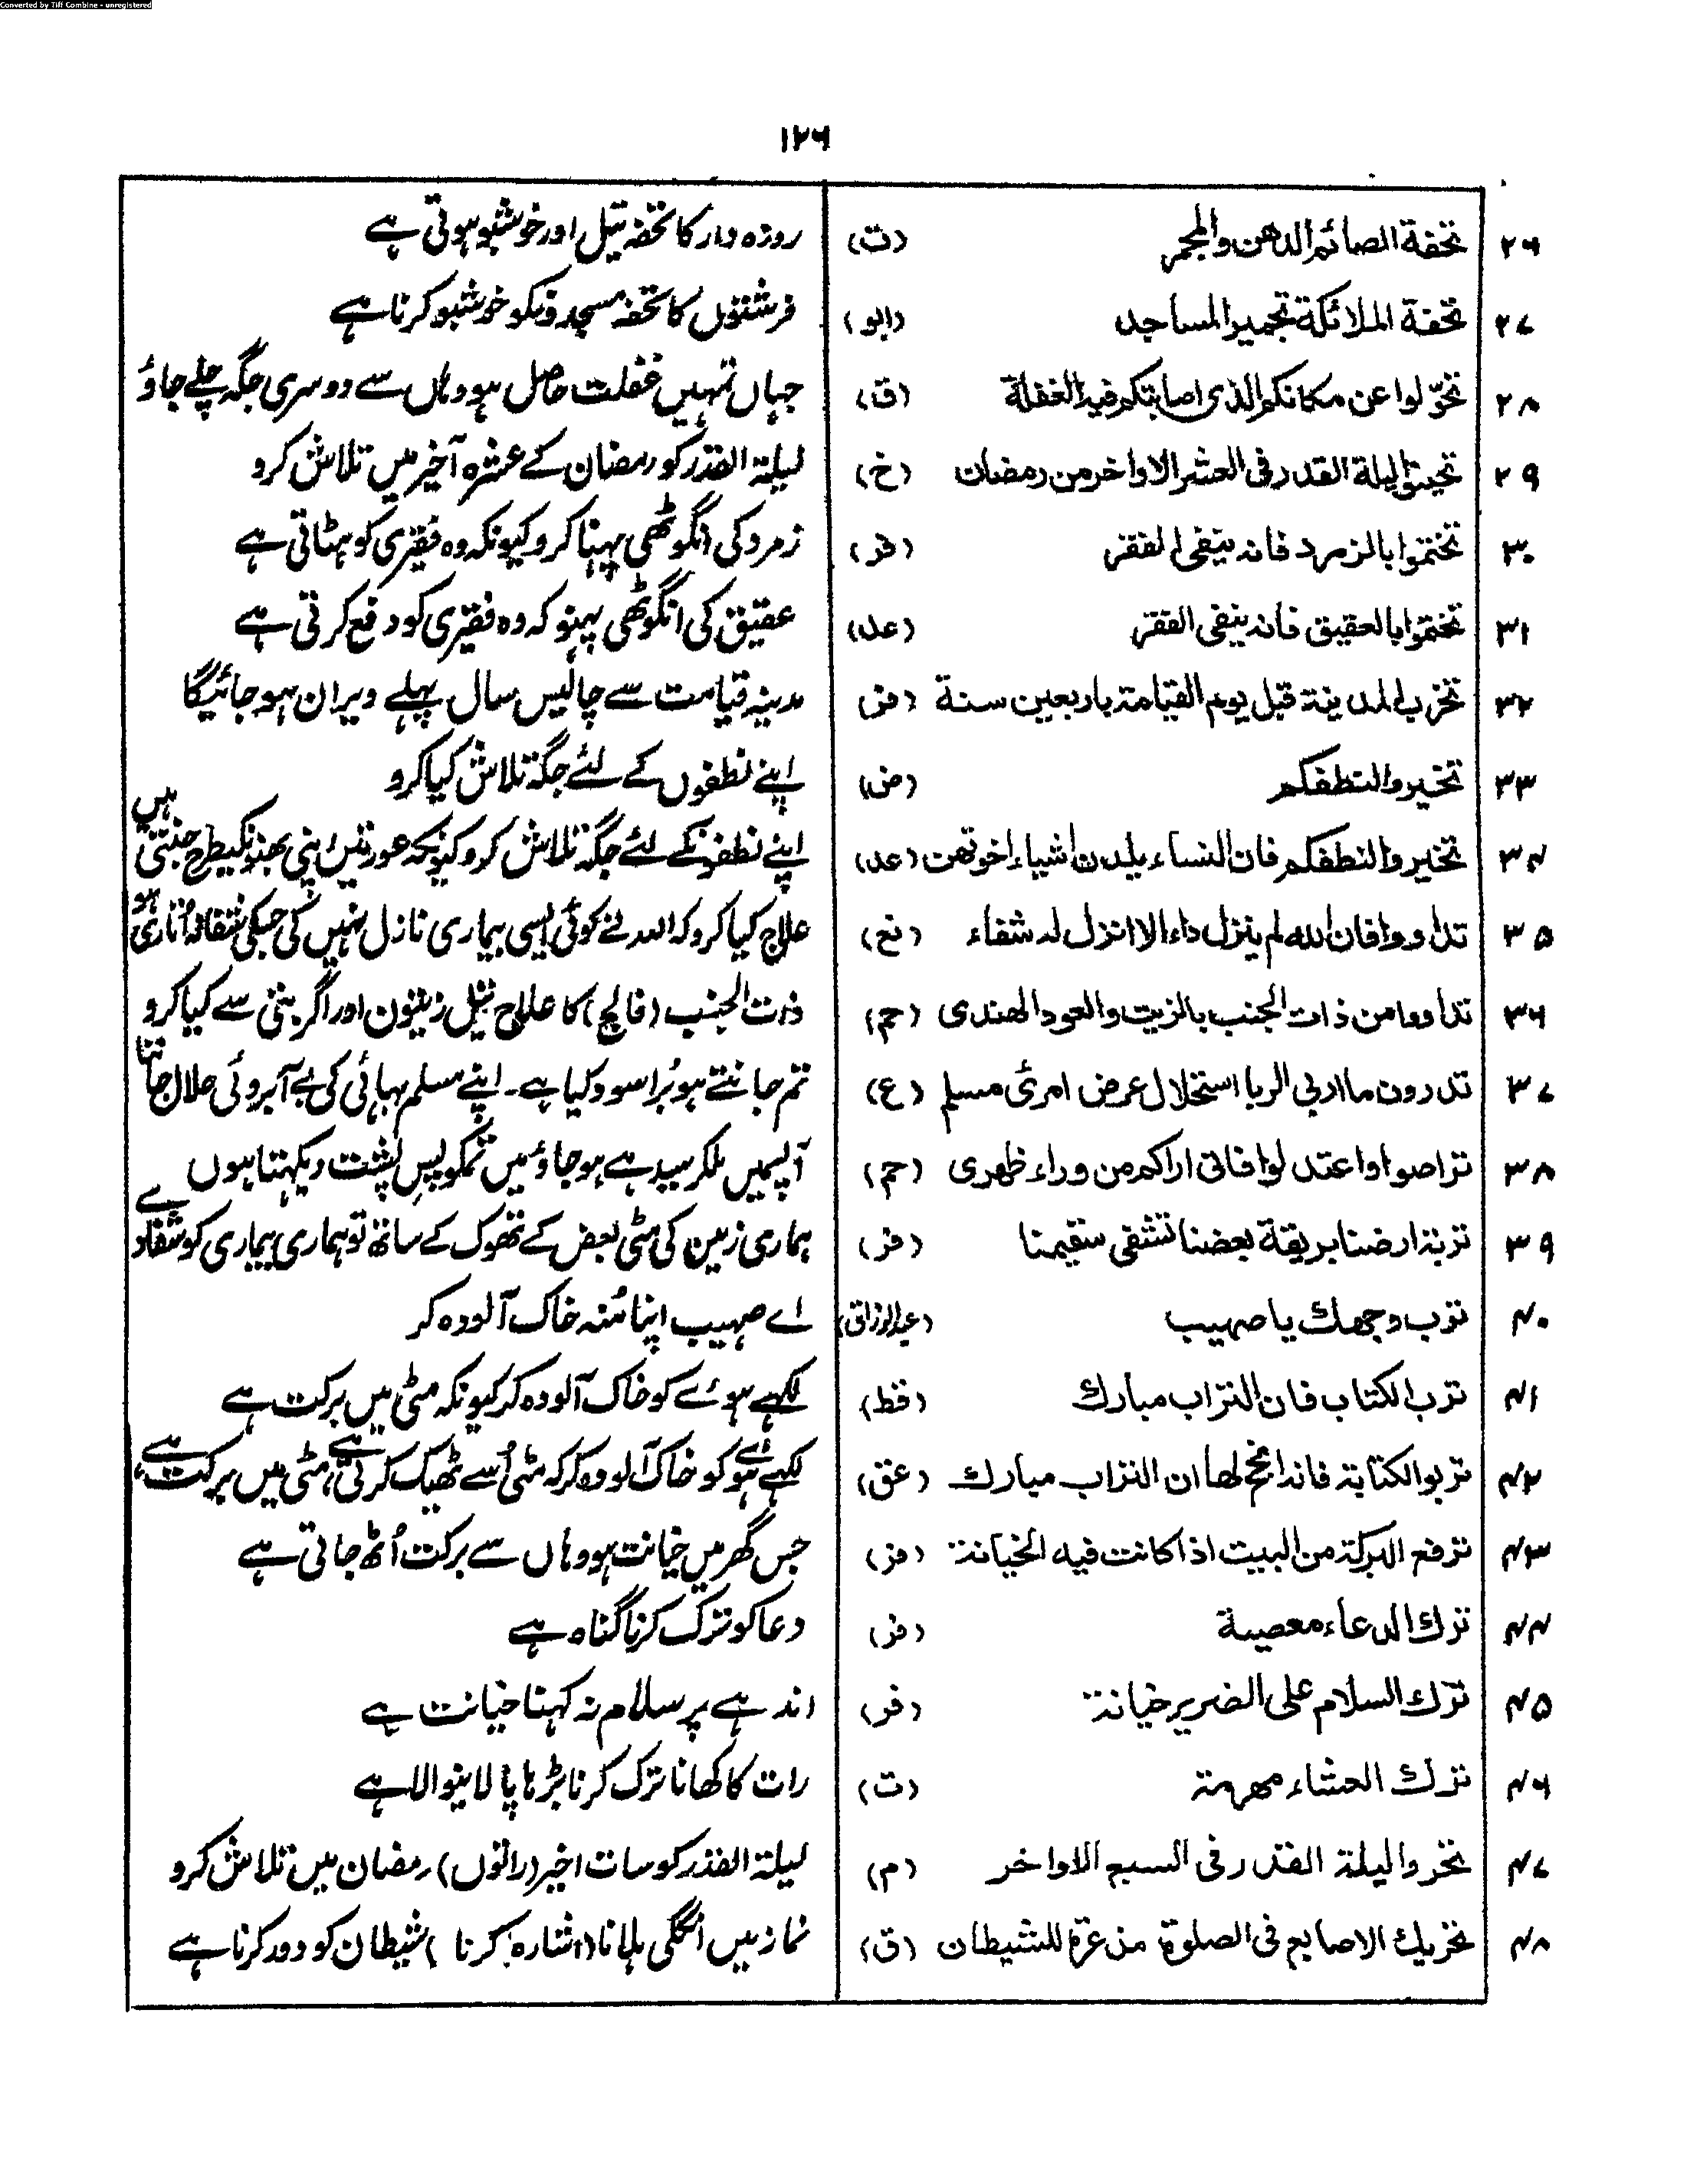 Converted by Tiff Combine - unregistered
۱۲۶
۲۶ تحفة الصائم الدهن والمجمر (ت) روزہ دار کا تحفہ تیل اور خوشبو ہوتی ہے
۲۷ تحفة الملائكة تجمير المساجد (ابو) فرشتوں کا تحفہ مسجدونکو خوشبو کرنا ہے
۲۸ تحوّلوا عن مكانكم الذى اصابتكم فيه الغفلة (ق) جہاں تمہیں غفلت حاصل ہو وہاں سے دوسری جگہ چلے جاؤ
۲۹ تحينوا ليلة القدر فى العشر الاواخر من رمضان (خ) لیلۃ القدر کو رمضان کے عشرہ آخیر میں تلاش کرو
۳۰ تختموا بالزمرد فانه ينفى الفقر (فر) زمرد کی انگوٹھی پہنا کرو کیونکہ وہ فقیری کو ہٹاتی ہے
۳۱ تختموا بالعقيق فانه ينفى الفقر (عد) عقیق کی انگوٹھی پہنو کہ وہ فقیری کو دفع کرتی ہے
۳۲ تخرب المدينة قبل يوم القيامة باربعين سنة (فر) مدینہ قیامت سے چالیس سال پہلے ویران ہو جائیگا
۳۳ تخيروا لنطفكم (ض) اپنے نطفوں کے لئے جگہ تلاش کیا کرو
۳۴ تخيروا لنطفكم فان النساء يلدن اشباء اخوتهن (عد) اپنے نطفونکے لئے جگہ تلاش کرو کیونکہ عورتیں اپنی بھنونکیطرح جنتی ہیں
۳۵ تداووا فان الله لم ينزل داء الا انزل له شفاء (نخ) علاج کیا کرو کہ اللہ نے کوئی ایسی بیماری نازل نہیں کی جسکی شفا نہ اُتاری ہو
۳۶ تداووا من ذات الجنب بالزيت والعود الهندى (حم) ذات الجنب (فالج) کا علاج تیل زیتون اور اگر بتی سے کیا کرو
۳۷ تدرون ما اربى الربا استحلال عرض امرئ مسلم (ع) تم جانتے ہو بُرا سود کیا ہے۔ اپنے مسلم بھائی کی بے آبروئی حلال جاننا
۳۸ تراصوا واعتدلوا فانى اراكم من وراء ظهرى (حم) آپسمیں ملکر سیدھے ہو جاؤ میں تمکو پسِ پشت دیکھتا ہوں
۳۹ تربة ارضنا بريقة بعضنا تشفى سقيمنا (فر) ہماری زمین کی مٹی بعض کے تھوک کے ساتھ تو ہماری بیماری کو شفا دے
۴۰ ترب وجهك يا صهيب (عبدالرزاق) اے صہیب اپنا مُنہ خاک آلودہ کر
۴۱ ترب الكتاب فان التراب مبارك (قط) لکھے ہوئے کو خاک آلودہ کر کیونکہ مٹی میں برکت ہے
۴۲ تربوا الكتابة فانه انجح لها ان التراب مبارك (عق) لکھے ہوئے کو خاک آلودہ کر کہ مٹی اُسے ٹھیک کرتی ہے، مٹی میں برکت ہے
۴۳ ترفع البركة من البيت اذا كانت فيه الخيانة (فر) جس گھر میں خیانت ہو وہاں سے برکت اُٹھ جاتی ہے
۴۴ ترك الدعاء معصية (فر) دعا کو ترک کرنا گناہ ہے
۴۵ ترك السلام على الضرير خيانة (فر) اندھے پر سلام نہ کہنا خیانت ہے
۴۶ ترك العشاء مهرمة (ت) رات کا کھانا ترک کرنا بڑھاپا لانیوالا ہے
۴۷ تحروا ليلة القدر فى السبع الاواخر (م) لیلۃ القدر کو سات اخیر (راتوں) رمضان میں تلاش کرو
۴۸ تحريك الاصابع فى الصلوة مذعرة للشيطان (ق) نماز میں انگلی ہلانا (اشارہ کرنا) شیطان کو دور کرنا ہے